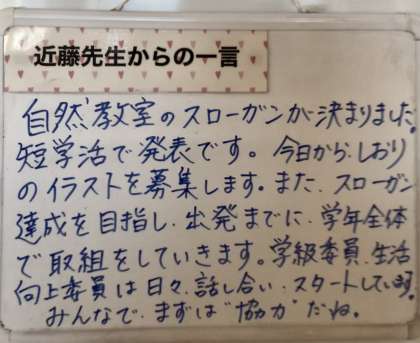 近藤先生からの一言
自然教室のスローガンが決まりました
短学活で発表です。今日から、しおり
のイラストを募集します。また、スローガン
達成を目指し、出発までに、学年全体
で取組をしていきます。学級委員、生活
向上委員は日々、話し合い、スタートしています。
みんなで、まずは"協力"だね。